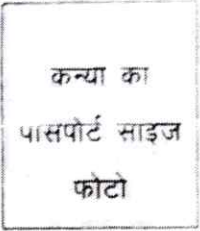 कन्या का
पासपोर्ट साइज
फोटो